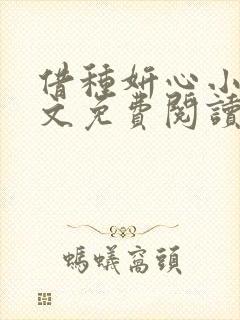 借種妍心小
文免費閱讀
螞蟻窩頭